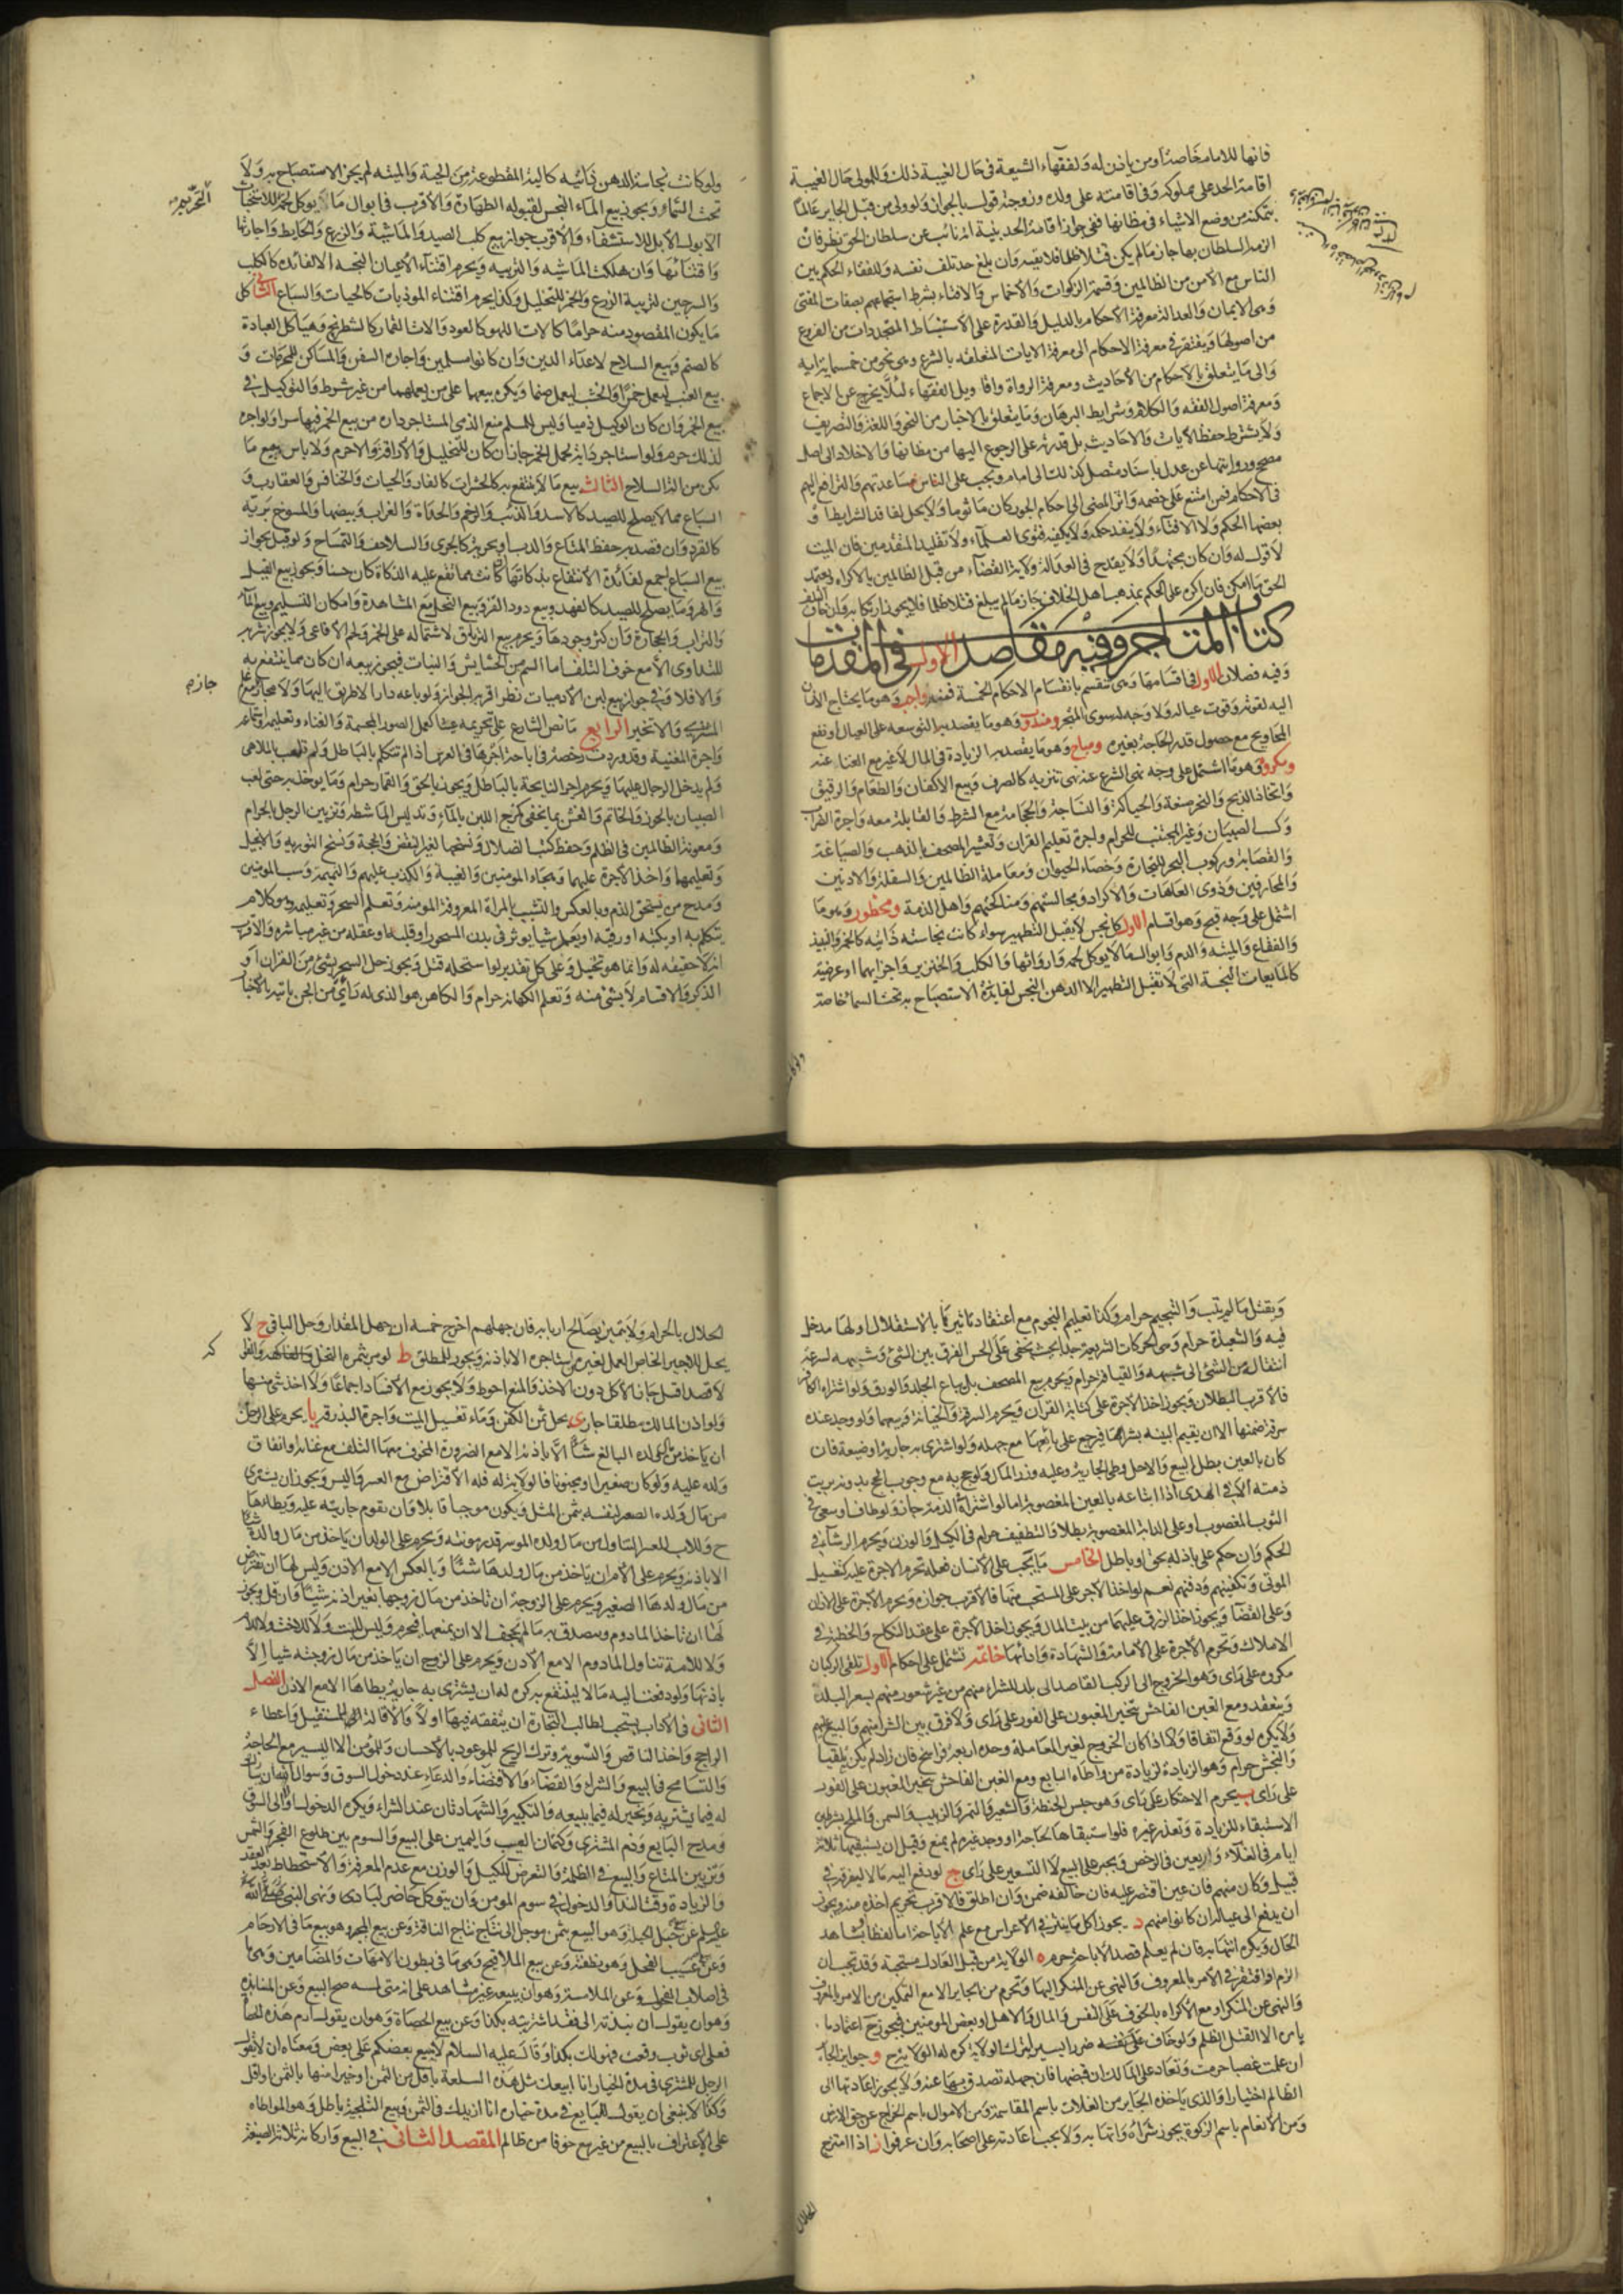 فانها للامام خاصة او من ياذن له ولفقهاء الشيعة في حال الغيبة ذلك وللمولى حال الغيبة
اقامة الحد على مملوكه وفي اقامته على ولده وزوجته قول بالجواز ولو ولى من قبل الجاير عالما
بتمكنه من وضع الاشياء في مظانها ففي جواز اقامة الحد بنية انه نائب عن سلطان الحق نظر فان
الزمه السلطان بها جاز مالم يكن قتلا ظلما فلا تقية وان بلغ حد تلف نفسه وللفقهاء الحكم بين
الناس مع الامن من الظالمين وقسمة الزكوات والاخماس والافتاء بشرط استجماعهم بصفات المفتى
وهى الايمان والعدالة ومعرفة الاحكام بالدليل والقدرة على الاستنباط المتجددات من الفروع
من اصولها ويفتقر في معرفة الاحكام الى معرفة الايات المتعلقة بالشرع وهى نحو من خمسماية اية
والى ما يتعلق بالاحكام من الاحاديث ومعرفة الرواة واقاويل الفقهاء لئلا يخرج عن الاجماع
ومعرفة اصول الفقه والكلام وشرايط البرهان وما يتعلق بالاخبار من النحو واللغة والتصريف
ولا يشترط حفظ الايات والاحاديث بل قدرته على الرجوع اليها من مظانها والاخلاد الى اصل
مصحح وروايتها عن عدل باسناد متصل كذلك الى امام ويجب على الناس مساعدتهم والترافع اليهم
في الاحكام فمن امتنع على خصمه واثر المضى الى حكام الجور كان ماثوما ولا يحل لفاقد الشرايط او
بعضها الحكم ولا الافتاء ولا ينفذ حكمه ولا يكفيه فتوى العلماء ولا تقليد المتقدمين فان الميت
لا قول له وان كان مجتهدا ولا يقدح في العدالة ولاية القضاء من قبل الظالمين بالاكراه ويعتمد
الحق ما امكن فان اكره على الحكم بمذهب اهل الخلاف جاز ما لم يبلغ قتلا ظلما فلا يجوز ارتكابه وان خاف التلف
كتاب المتاجر وفيه مقاصد الاول في المقدمات
وفيه فصلان الاول في اقسامها وهى تنقسم بانقسام الاحكام الخمسة فمنه واجب وهو ما يحتاج الانسان
اليه لقوته وقوت عياله ولا وجه له سوى المتجر ومندوب وهو ما يقصد به التوسعة على العيال او نفع
المحاويج مع حصول قدر الحاجة بغيره ومباح وهو ما يقصد به الزيادة في المال لا غير مع الغنا عنه
ومكروه وهو ما اشتمل على وجه نهى الشرع عنه نهى تنزيه كالصرف وبيع الاكفان والطعام والرقيق
واتخاذ الذبح والنحر صنعة والحياكة والنساجة والحجامة مع الشرط والقابلة معه واجرة الضراب
وكسب الصبيان وغير المجتنب للحرام واجرة تعليم القران وتعشير المصحف بالذهب والصياغة
والقصابة وركوب البحر للتجارة وخصاء الحيوان ومعاملة الظالمين والسفلة والادنين
والمحارفين وذوى العاهات والاكراد ومجالستهم ومناكحتهم واهل الذمة ومحظور وهو ما
اشتمل على وجه قبح وهو اقسام الاول كل نجس لا يقبل التطهير سواء كانت نجاسته ذاتية كالخمر والنبيذ
والفقاع والميتة والدم وابوال ما لا يوكل لحمه وارواثها والكلب والخنزير واجزايهما او عرضية
كالمايعات النجسة التى لا تقبل التطهير الا الدهن النجس لفايدة الاستصباح به تحت السماء خاصة
ولو كانت
ولو كانت نجاسة الدهن ذاتية كالية المقطوعة من الحية والميتة لم يجز الاستصباح به ولا
تحت السماء ويجوز بيع الماء النجس لقبوله الطهارة والاقرب في ابوال ما لا يوكل لحمه للاستخباث
التحريم
الا بول الابل للاستشفاء والاقرب جواز بيع كلب الصيد والماشية والزرع والحايط واجارتها
واقتنائها وان هلكت الماشية والتربية ويحرم اقتناء الاعيان النجسة الا لفائدة كالكلب
والسرجين لتربية الزرع والخمر للتخليل وكذا يحرم اقتناء الموذيات كالحيات والسباع الثانى كل
ما يكون المقصود منه حراما كالات اللهو كالعود والات القمار كالشطرنج وهياكل العبادة
كالصنم وبيع السلاح لاعداء الدين وان كانوا مسلمين واجارة السفن والمساكن للمحرمات و
بيع العنب ليعمل خمرا والخشب ليعمل صنما ويكره بيعهما على من يعملهما من غير شرط والتوكيل في
بيع الخمر وان كان الوكيل ذميا وليس للمسلم منع الذمى المستاجر داره من بيع الخمر فيها سرا ولو اجره
لذلك حرم ولو استاجر دابة لحمل الخمر جاز ان كان للتخليل والاراقة والا حرم ولا باس ببيع ما
يكن من الة السلاح الثالث بيع ما لا ينتفع به كالحشرات كالفار والحيات والخنافس والعقارب و
السباع مما لا يصلح للصيد كالاسد والذئب والرخم والحداة والغراب وبيضها والمسوخ برية
كالقرد وان قصد به حفظ المتاع والدب او بحرية كالجرى والسلاحف والتمساح ولو قيل بجواز
بيع السباع اجمع لفائدة الانتفاع بذكاتها كانت مما تقع عليه الذكاة كان حسنا ويجوز بيع الفيل
والهر وما يصلح للصيد كالفهد وبيع دود القز وبيع النحل مع المشاهدة وامكان التسليم وبيع الماء
والتراب والحجارة وان كثر وجودها ويحرم بيع الترياق لاشتماله على الخمر ولحم الافاعى ولا يجوز شربه
للتداوى الا مع خوف التلف اما السم من الحشايش والنبات فيجوز بيعه ان كان مما ينتفع به
والا فلا وفي جواز بيع لبن الادميات نظر اقربه الجواز ولو باعه دارا لا طريق اليها ولا مجاز مع علم
جاز
المشترى والا تخير الرابع ما نص الشارع على تحريمه عينا كعمل الصور المجسمة والغناء وتعليمه واستماعه
واجرة المغنية وقد وردت رخصة في اباحة اجرها في العرس اذا لم تتكلم بالباطل ولم تلعب بالملاهى
ولم يدخل الرجال عليها ويحرم اجر النايحة بالباطل ويجوز بالحق والقمار حرام وما يوخذ به حتى لعب
الصبيان بالجوز والخاتم والغش بما يخفى كمزج اللبن بالماء وتدليس الماشطة وتزيين الرجل بالحرام
ومعونة الظالمين في الظلم وحفظ كتب الضلال ونسخها لغير النقض والحجة ونسخ التورية والانجيل
وتعليمهما واخذ الاجرة عليهما وهجاء المومنين والغيبة والكذب عليهم والنميمة وسب المومنين
ومدح من يستحق الذم وبالعكس والتشبيب بالمراة المعروفة المومنة وتعلم السحر وتعليمه وهو كلام
يتكلم به او يكتبه او رقية او يعمل شيا يوثر في بدن المسحور او قلبه او عقله من غير مباشرة والاقرب
انه لا حقيقة له وانما هو تخييل وعلى كل تقدير لو استحله قتل ويجوز حل السحر بشىء من القران او
الذكر والاقسام لا بشىء منه وتعلم الكهانة حرام والكاهن هو الذى له رائى من الجن ياتيه بالاخبار
ويقتل ما لم يتب والتنجيم حرام وكذا تعليم النجوم مع اعتقاد تاثيرها بالاستقلال او لها مدخل
فيه والشعبذة حرام وهى الحركات السريعة جدا بحيث تخفى على الحس الفرق بين الشىء وشبهه لسرعة
انتقاله من الشىء الى شبهه والقيافة حرام ويحرم بيع المصحف بل يباع الجلد والورق ولو اشتراه الكافر
فالاقرب البطلان ويجوز اخذ الاجرة على كتابة القران ويحرم السرقة والخيانة وبيعهما ولو وجد عنده
سرقة ضمنها الا ان يقيم البينة بشرائها فيرجع على بائعها مع جهله ولو اشترى به جارية او ضيعة فان
كان بالعين بطل البيع والا حل وطى الجارية وعليه وزر المال ولو حج به مع وجوب الحج بدونه بريت
ذمته الا في الهدى اذا ابتاعه بالعين المغصوبة اما لو اشتراه في الذمة جاز ولو طاف او سعى في
الثوب المغصوب او على الدابة المغصوبة بطلا والتطفيف حرام في الكيل والوزن ويحرم الرشا في
الحكم وان حكم على باذله بحق او باطل الخامس ما يجب على الانسان فعله تحرم الاجرة عليه كتغسيل
الموتى وتكفينهم ودفنهم نعم لو اخذ الاجر على المستحب منها فالاقرب جوازه ويحرم الاجرة على الاذان
وعلى القضا ويجوز اخذ الرزق عليهما من بيت المال ويجوز اخذ الاجرة على عقد النكاح والخطبة في
الاملاك وتحرم الاجرة على الامامة والشهادة وادائها خاتمة تشتمل على احكام الاول تلقى الركبان
مكروه على راى وهو الخروج الى الركب القاصد الى بلد للشراء منهم من غير شعور منهم بسعر البلد
وينعقد ومع الغبن الفاحش يتخير المغبون على الفور على راى ولا فرق بين الشرا منهم والبيع عليهم
ولا يكره لو وقع اتفاقا ولا اذا كان الخروج لغير المعاملة وحده اربعة فراسخ فان زاد لم يكن تلقيا
والنجش حرام وهو الزيادة لزيادة من واطاه البايع ومع الغبن الفاحش يتخير المغبون على الفور
على راى ب يحرم الاحتكار على راى وهو حبس الحنطة والشعير والتمر والزبيب والسمن والملح بشرطين
الاستبقاء للزيادة وتعذر غيره فلو استبقاها لحاجته او وجد غيره لم يمنع وقيل ان يستبقيها ثلاثة
ايام في الغلاء واربعين في الرخص ويجبر على البيع لا التسعير على راى ج لو دفع اليه مالا ليفرقه في
قبيل وكان منهم فان عين اقتصر عليه فان خالفه ضمن وان اطلق فالاقرب تحريم اخذه منه ويجوز
ان يدفع الى عياله ان كانوا منهم د يجوز اكل ما ينثر في الاعراس مع علم الاباحة اما لفظا او بشاهد
الحال ويكره انتهابه فان لم يعلم قصد الاباحة حرم ه الولاية من قبل العادل مستحبة وقد تجب ان
الزم او افتقر في الامر بالمعروف والنهى عن المنكر اليها وتحرم من الجاير الا مع التمكين من الامر بالمعروف
والنهى عن المنكر او مع الاكراه بالخوف على النفس والمال والاهل او بعض المومنين فيجوز ح اعتماد ما
يامره الا القتل الظلم ولو خاف على نفسه ضررا يسيرا بترك الولاية كره له الولاية ح و جوايز الجائر
ان علمت غصبا حرمت وتعاد على المالك ان قبضها فان جهله تصدق بها عنه ولا يجوز اعادتها الى
الظالم اختيارا والذى ياخذه الجاير من الغلات باسم المقاسمة ومن الاموال باسم الخراج عن حق الارض
ومن الانعام باسم الزكوة يجوز شراؤه واتهابه ولا يجب اعادته على اصحابه وان عرفوا ز اذا امتزج
الحلال
الحلال بالحرام ولا يتميز يصالح اربابه فان جهلهم اخرج خمسه ان جهل المقدار وحل الباقى ح لا
يحل للاجير الخاص العمل لغير من استاجره الا باذنه ويجوز للمطلق ط لو مر بثمره النخل والفاكهة والزرع
لا قصدا قيل جاز الاكل دون الاخذ والمنع احوط ولا يجوز مع الافساد اجماعا ولا اخذ شى منها
ولو اذن المالك مطلقا جاز ى يحل ثمن الكفن وماء تغسيل الميت واجرة البذرقة يا يحرم على الرجل
ان ياخذ من مال ولده البالغ شيا الا باذنه الا مع الضرورة المخوف معها التلف مع غنائه وانفاق
ولده عليه ولو كان صغيرا او مجنونا فالولاية له فله الاقتراض مع العسر واليسر ويجوز ان يشترى
من مال ولده الصغير لنفسه بثمن المثل ويكون موجبا قابلا وان يقوم جاريته عليه ويطاءها
ح وللاب المعسر التناول من مال ولده الموسر قدر مونته ويحرم على الولد ان ياخذ من مال والده شيا
الا باذنه ويحرم على الام ان ياخذ من مال ولدها شيا وبالعكس الا مع الاذن وليس لها ان تقترض
من مال ولدها الصغير ويحرم على الزوجة ان تاخذ من مال زوجها بغير اذنه شيئا وان قل ويجوز
لها ان تاخذ المادوم وتتصدق به ما لم يجحف الا ان يمنعها فيحرم وليس للبنت ولا للاخت ولا للام
ولا للامة تناول المادوم الا مع الاذن ويحرم على الزوج ان ياخذ من مال زوجته شيا الا
باذنها ولو دفعت اليه مالا لينتفع به كره له ان يشترى به جارية يطاها الا مع الاذن الفصل
الثانى في الاداب يستحب لطالب التجارة ان يتفقه فيها اولا والاقالة للمستقيل واعطاء
الراجح واخذ الناقص والتسوية وترك الربح للموعود بالاحسان وللمؤمن الا اليسير مع الحاجة
والتسامح في البيع والشراء والقضاء والاقتضاء والدعاء عند دخول السوق وسوال الله ان يبارك
له فيما يشتريه ويخير له فيما يبيعه والتكبير والشهادتان عند الشراء ويكره الدخول اولا الى السوق
ومدح البايع وذم المشترى وكتمان العيب واليمين على البيع والسوم بين طلوع الفجر والشمس
وتزيين المتاع والبيع في الظلمة والتعرض للكيل والوزن مع عدم المعرفة والاستحطاط بعد العقد
والزيادة وقت الندا والدخول في سوم المومن وان يتوكل حاضر لبادى ونهى النبى صلى الله
عليه وسلم عن بيع حبل الحبلة وهو البيع بثمن موجل الى نتاج نتاج الناقة وعن بيع المجر وهو بيع ما في الارحام
وعن بيع عسيب الفحل وهو نطفته وعن بيع الملاقيح وهى ما في بطون الامهات والمضامين وهى ما
في اصلاب الفحول وعن الملامسة وهو ان يبيعه غير مشاهد على انه متى لمسه صح البيع وعن المنابذة
وهو ان يقول ان نبذته الى فقد اشتريته بكذا وعن بيع الحصاة وهو ان يقول ارم هذه الحصاة
فعلى اى ثوب وقعت فهو لك بكذا وقال عليه السلام لا يبيع بعضكم على بعض ومعناه ان لا يقول
الرجل للمشترى في مدة الخيار انا ابيعك مثل هذه السلعة باقل من الثمن او خيرا منها بالثمن او اقل
وكذا لا ينبغى ان يقول للبايع في مدة خياره انا ازيدك في الثمن وبيع التلجئة باطل وهو المواطاه
على الاعتراف بالبيع من غير بيع خوفا من ظالم المقصد الثانى في البيع واركانه ثلاثة الصيغة